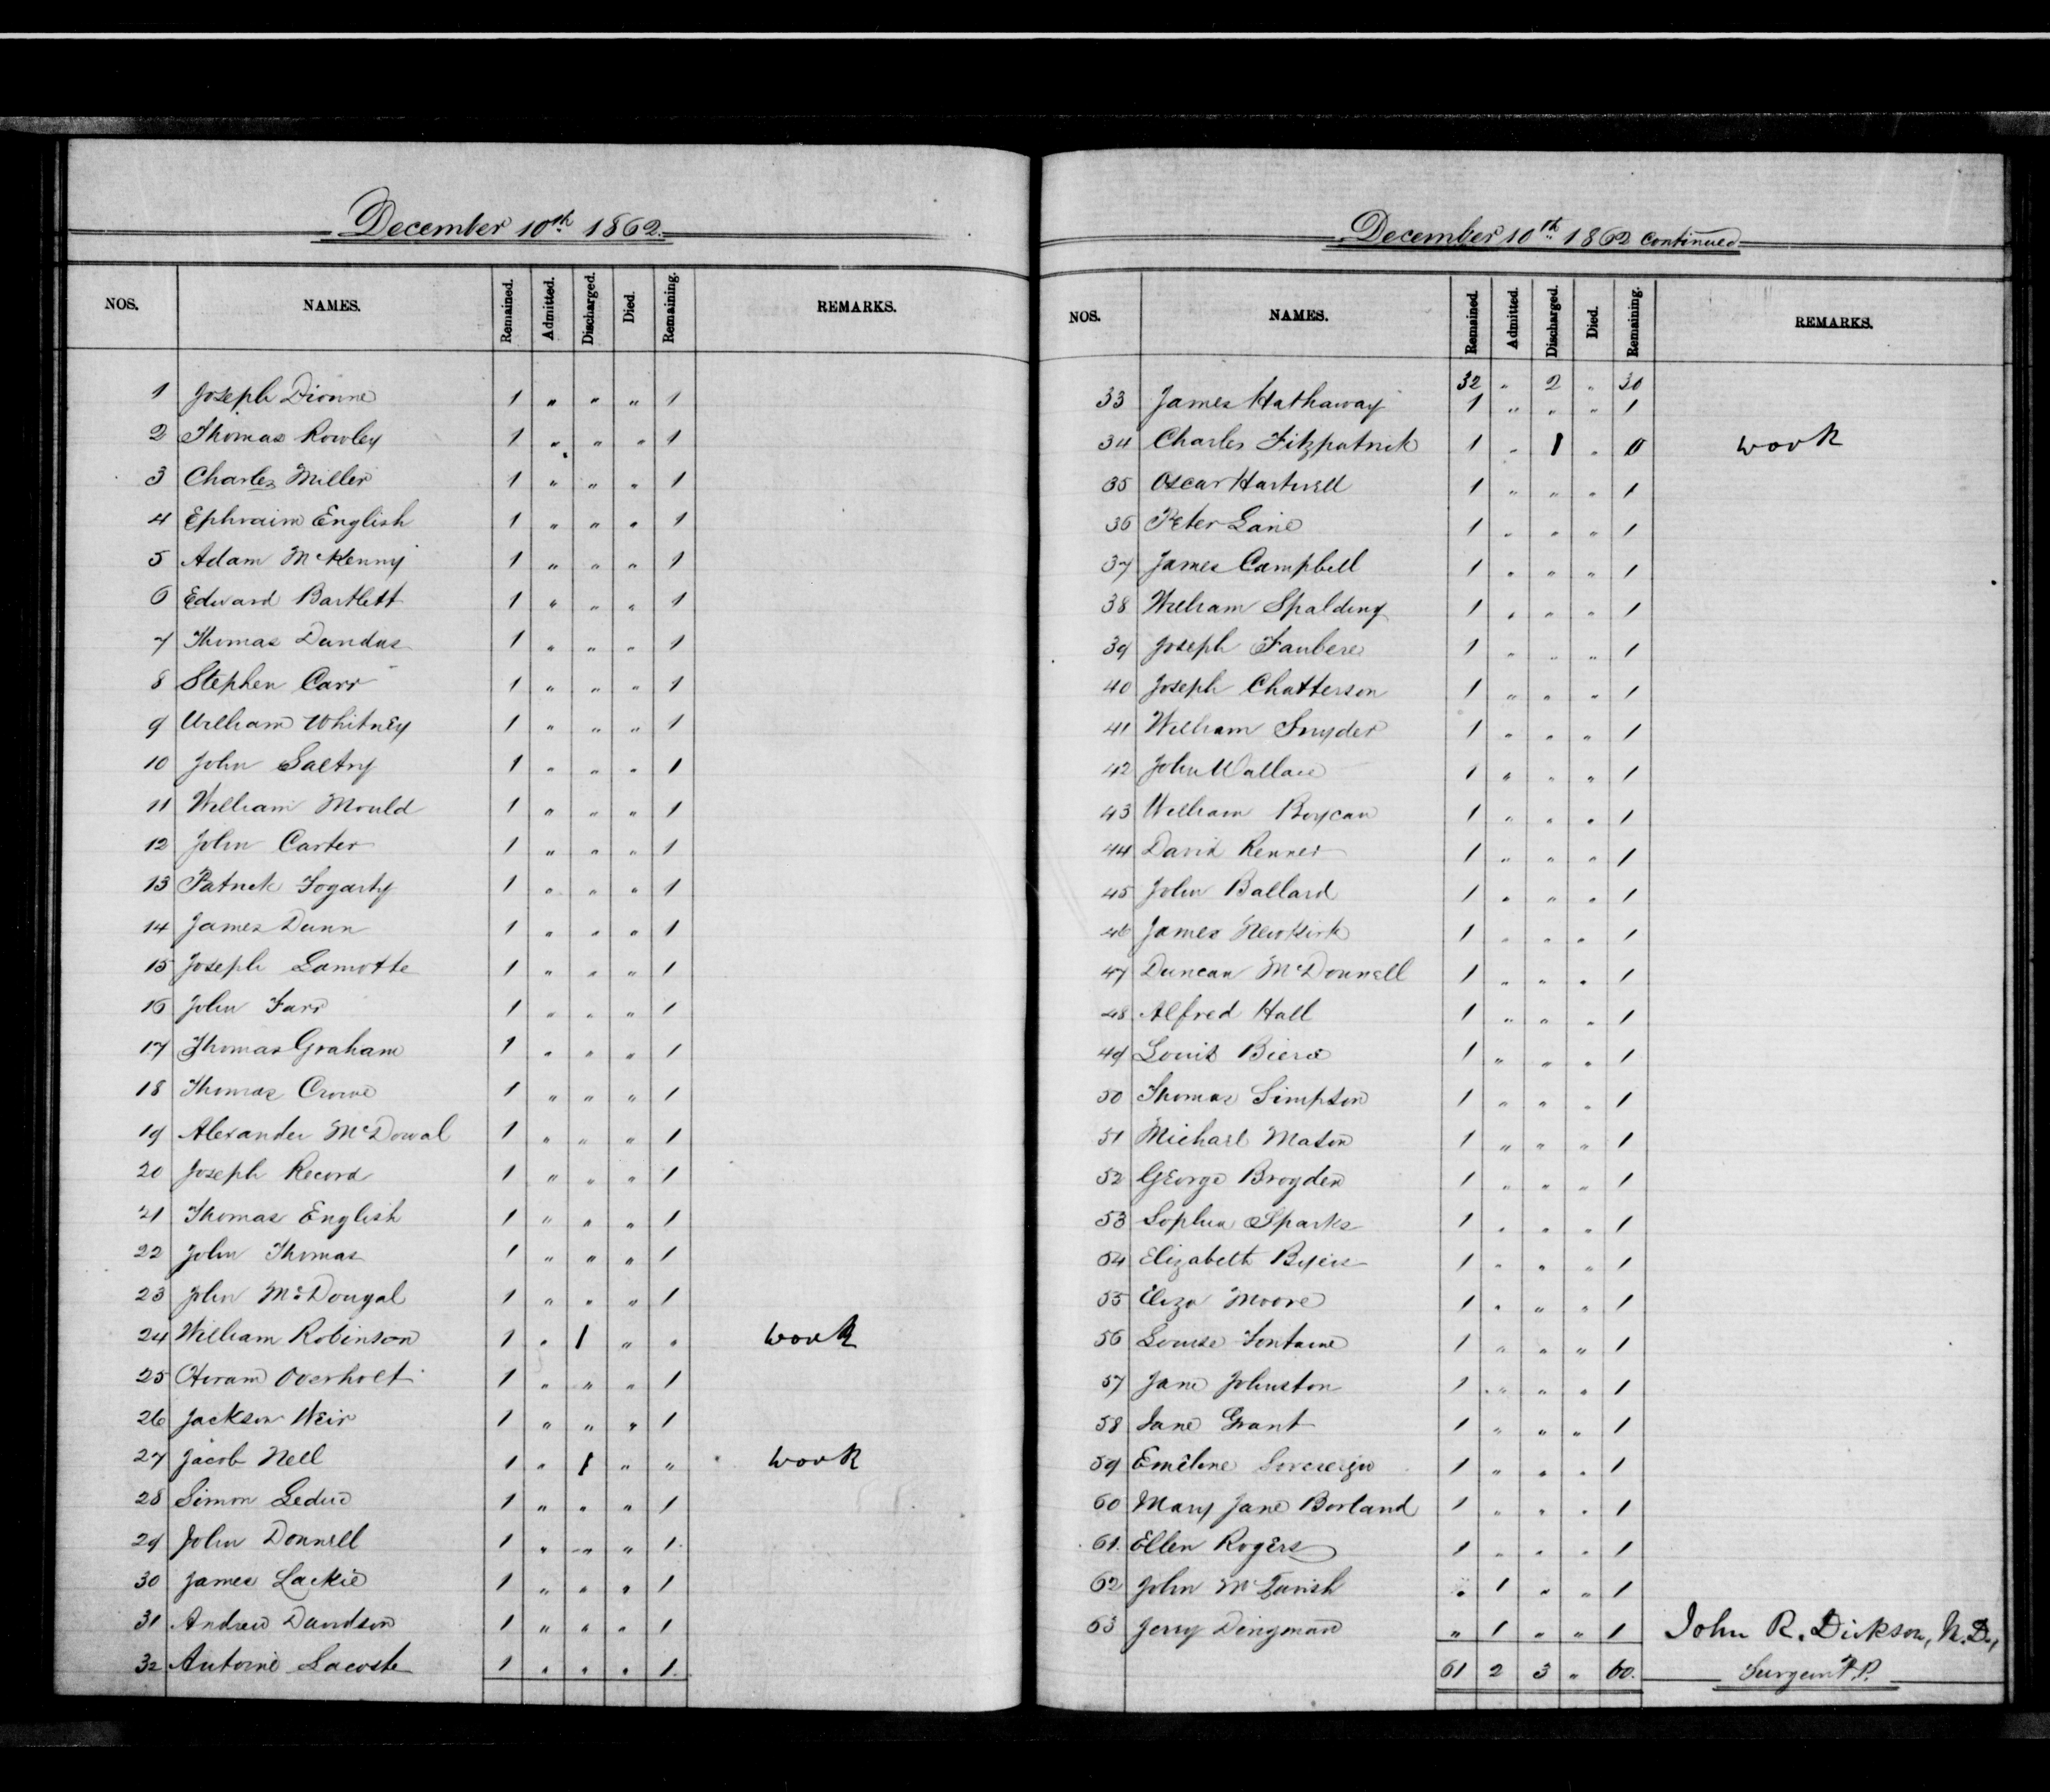 December 10th 1862.
NOS. NAMES. Remained. Admitted. Discharged. Died. Remaining. REMARKS.
1 Joseph Dionne 1 " " " 1
2 Thomas Rowley 1 " " " 1
3 Charles Miller 1 " " " 1
4 Ephraim English 1 " " " 1
5 Adam McKenny 1 " " " 1
6 Edward Bartlett 1 " " " 1
7 Thomas Dundas 1 " " " 1
8 Stephen Carr 1 " " " 1
9 William Whitney 1 " " " 1
10 John 1 " " " 1
11 William Mould 1 " " " 1
12 John Carter 1 " " " 1
13 Patrick Fogarty 1 " " " 1
14 James Dunn 1 " " " 1
15 Joseph Lamotte 1 " " " 1
16 John Farr 1 " " " 1
17 Thomas Graham 1 " " " 1
18 Thomas Crowe 1 " " " 1
19 Alexander McDowal 1 " " " 1
20 Joseph Record 1 " " " 1
21 Thomas English 1 " " " 1
22 John Thomas 1 " " " 1
23 John McDougal 1 " " " 1
24 William Robinson 1 " 1 " " work
25 Hiram Overholt 1 " " " 1
26 Jackson Weir 1 " " " 1
27 Jacob Nell 1 " 1 " " work
28 Simon Leduc 1 " " " 1
29 John Donnell 1 " " " 1
30 James Lackie 1 " " " 1
31 Andrew Davidson 1 " " " 1
32 Antoine Lacoste 1 " " " 1
December 10th 1862 continued
NOS. NAMES. Remained. Admitted. Discharged. Died. Remaining. REMARKS.
32 " 2 " 30
33 James Hathaway 1 " " " 1
34 Charles Fitzpatrick 1 " 1 " 0 work
35 Oscar Hartwell 1 " " " 1
36 Peter Lane 1 " " " 1
37 James Campbell 1 " " " 1
38 William Spalding 1 " " " 1
39 Joseph 1 " " " 1
40 Joseph Chatterson 1 " " " 1
41 William Snyder 1 " " " 1
42 John Wallace 1 " " " 1
43 William 1 " " " 1
44 David Renner 1 " " " 1
45 John Ballard 1 " " " 1
46 James Newkirk 1 " " " 1
47 Duncan McDonnell 1 " " " 1
48 Alfred Hall 1 " " " 1
49 Louis 1 " " " 1
50 Thomas Simpson 1 " " " 1
51 Michael Mason 1 " " " 1
52 George Brogden 1 " " " 1
53 Sophia Sparks 1 " " " 1
54 Elizabeth Byers 1 " " " 1
55 Eliza Moore 1 " " " 1
56 Louise Fontaine 1 " " " 1
57 Jane Johnston 1 " " " 1
58 Jane Grant 1 " " " 1
59 Emeline 1 " " " 1
60 Mary Jane Borland 1 " " " 1
61 Ellen Rogers 1 " " " 1
62 John McTavish " 1 " " 1
63 Jerry Dingman " 1 " " 1 John R. Dickson, M.D.,
61 2 3 " 60. Surgeon P.P.